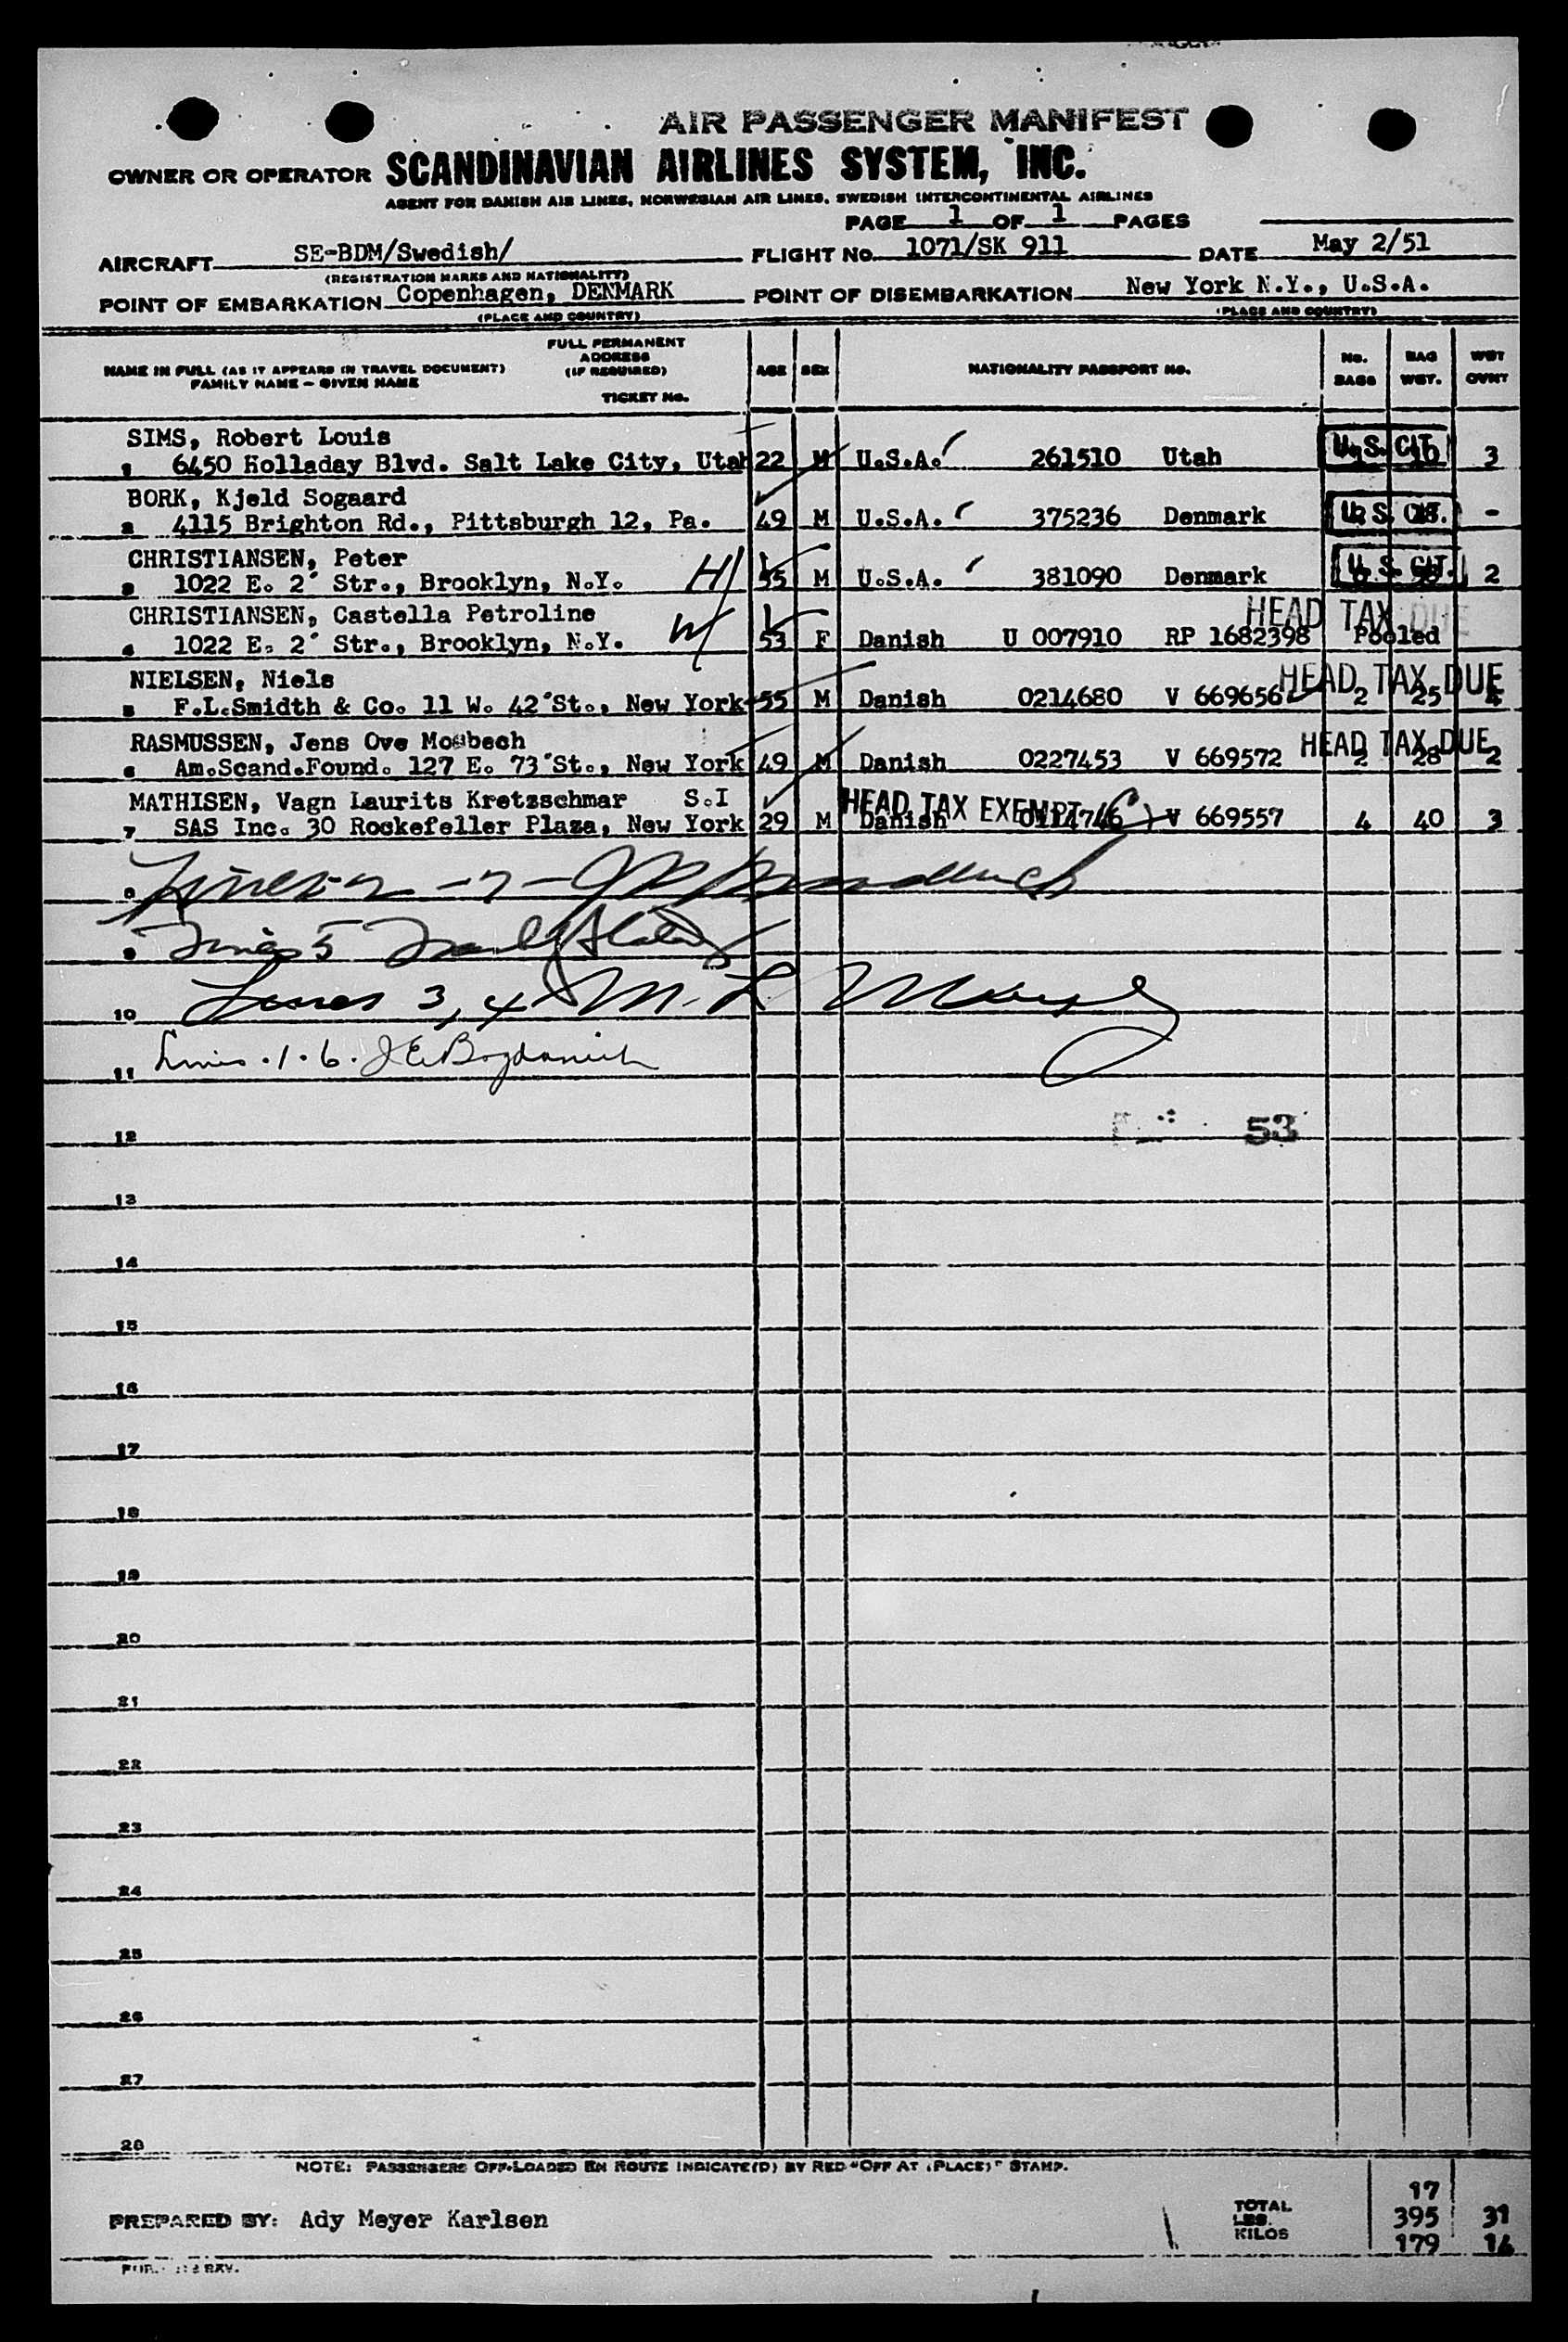 AIR PASSENGER MANIFEST
OWNER OR OPERATOR SCANDINAVIAN AIRLINES SYSTEM, INC.
AGENT FOR DANISH AIR LINES, NORWEGIAN AIR LINES, SWEDISH INTERCONTINENTAL AIRLINES
PAGE 1 OF 1 PAGES
AIRCRAFT SE-BDM/Swedish/ FLIGHT No. 1071/SK 911 DATE May 2/51
(REGISTRATION MARKS AND NATIONALITY)
POINT OF EMBARKATION Copenhagen, DENMARK POINT OF DISEMBARKATION New York N.Y., U.S.A.
(PLACE AND COUNTRY) (PLACE AND COUNTRY)
NAME IN FULL (AS IT APPEARS IN TRAVEL DOCUMENT) FAMILY NAME – GIVEN NAME FULL PERMANENT ADDRESS (IF REQUIRED) TICKET No. AGE SEX NATIONALITY PASSPORT No. No. BAGS BAG WGT. WGT OVNT
SIMS, Robert Louis
1 6450 Holladay Blvd. Salt Lake City, Utah 22 M U.S.A. 261510 Utah U.S. CIT. 3
BORK, Kjeld Sogaard
2 4115 Brighton Rd., Pittsburgh 12, Pa. 49 M U.S.A. 375236 Denmark U.S. CIT. -
CHRISTIANSEN, Peter
3 1022 E. 2' Str., Brooklyn, N.Y. H 55 M U.S.A. 381090 Denmark U.S. CIT. 2
CHRISTIANSEN, Castella Petroline HEAD TAX DUE
4 1022 E. 2' Str., Brooklyn, N.Y. W 53 F Danish U 007910 RP 1682398 Pooled
NIELSEN, Niels HEAD TAX DUE
5 F.L.Smidth & Co. 11 W. 42'St., New York 55 M Danish 0214680 V 669656 2 25 4
RASMUSSEN, Jens Ove Mosbech HEAD TAX DUE
6 Am.Scand.Found. 127 E. 73'St., New York 49 M Danish 0227453 V 669572 2 28 2
MATHISEN, Vagn Laurits Kretzschmar S.I HEAD TAX EXEMPT
7 SAS Inc. 30 Rockefeller Plaza, New York 29 M Danish 0114746 V 669557 4 40 3
8
9 Lines 5
10 Lines 3, 4 M. L.
11 Lines . 1 . 6 . J E Bogdanich
53
12
13
14
15
16
17
18
19
20
21
22
23
24
25
26
27
28
NOTE: PASSENGERS OFF-LOADED EN ROUTE INDICATE(D) BY RED "OFF AT (PLACE)" STAMP.
17
PREPARED BY: Ady Meyer Karlsen TOTAL LBS. 395 31
KILOS 179 14